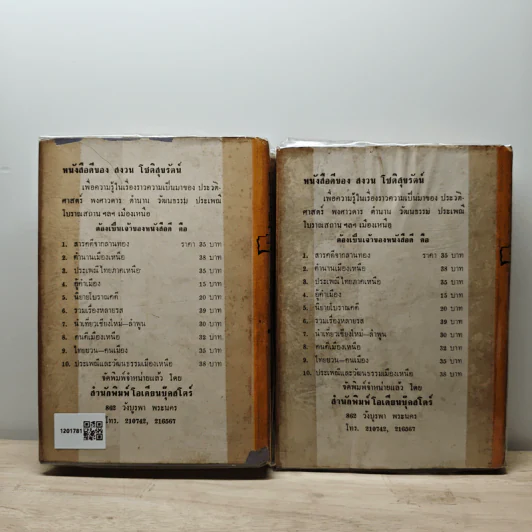 หนังสือดีของ สงวน โชติสุขรัตน์
เพื่อความรู้ในเรื่องราวความเป็นมาของ ประวัติ-
ศาสตร์ พงศาวดาร ตำนาน วัฒนธรรม ประเพณี
โบราณสถาน ฯลฯ เมืองเหนือ
ต้องเป็นเจ้าของหนังสือดี คือ
1. สารคดีจากลานทอง ราคา 35 บาท
2. ตำนานเมืองเหนือ 38 บาท
3. ประเพณีไทยภาคเหนือ 35 บาท
4. ผู้คำเมือง 15 บาท
5. นิยายโบราณคดี 20 บาท
6. รวมเรื่องหลายรส 39 บาท
7. นำเที่ยวเชียงใหม่-ลำพูน 30 บาท
8. คนดีเมืองเหนือ 32 บาท
9. ไทยยวน-คนเมือง 35 บาท
10. ประเพณีและวัฒนธรรมเมืองเหนือ 38 บาท
จัดพิมพ์จำหน่ายแล้ว โดย
สำนักพิมพ์โอเดียนบุ๊คสโตร์
862 วังบูรพา พระนคร
โทร. 210742, 216567
1201781
หนังสือดีของ สงวน โชติสุขรัตน์
เพื่อความรู้ในเรื่องราวความเป็นมาของ ประวัติ-
ศาสตร์ พงศาวดาร ตำนาน วัฒนธรรม ประเพณี
โบราณสถาน ฯลฯ เมืองเหนือ
ต้องเป็นเจ้าของหนังสือดี คือ
1. สารคดีจากลานทอง ราคา 35 บาท
2. ตำนานเมืองเหนือ 38 บาท
3. ประเพณีไทยภาคเหนือ 35 บาท
4. ผู้คำเมือง 15 บาท
5. นิยายโบราณคดี 20 บาท
6. รวมเรื่องหลายรส 39 บาท
7. นำเที่ยวเชียงใหม่-ลำพูน 30 บาท
8. คนดีเมืองเหนือ 32 บาท
9. ไทยยวน-คนเมือง 35 บาท
10. ประเพณีและวัฒนธรรมเมืองเหนือ 38 บาท
จัดพิมพ์จำหน่ายแล้ว โดย
สำนักพิมพ์โอเดียนบุ๊คสโตร์
862 วังบูรพา พระนคร
โทร. 210742, 216567